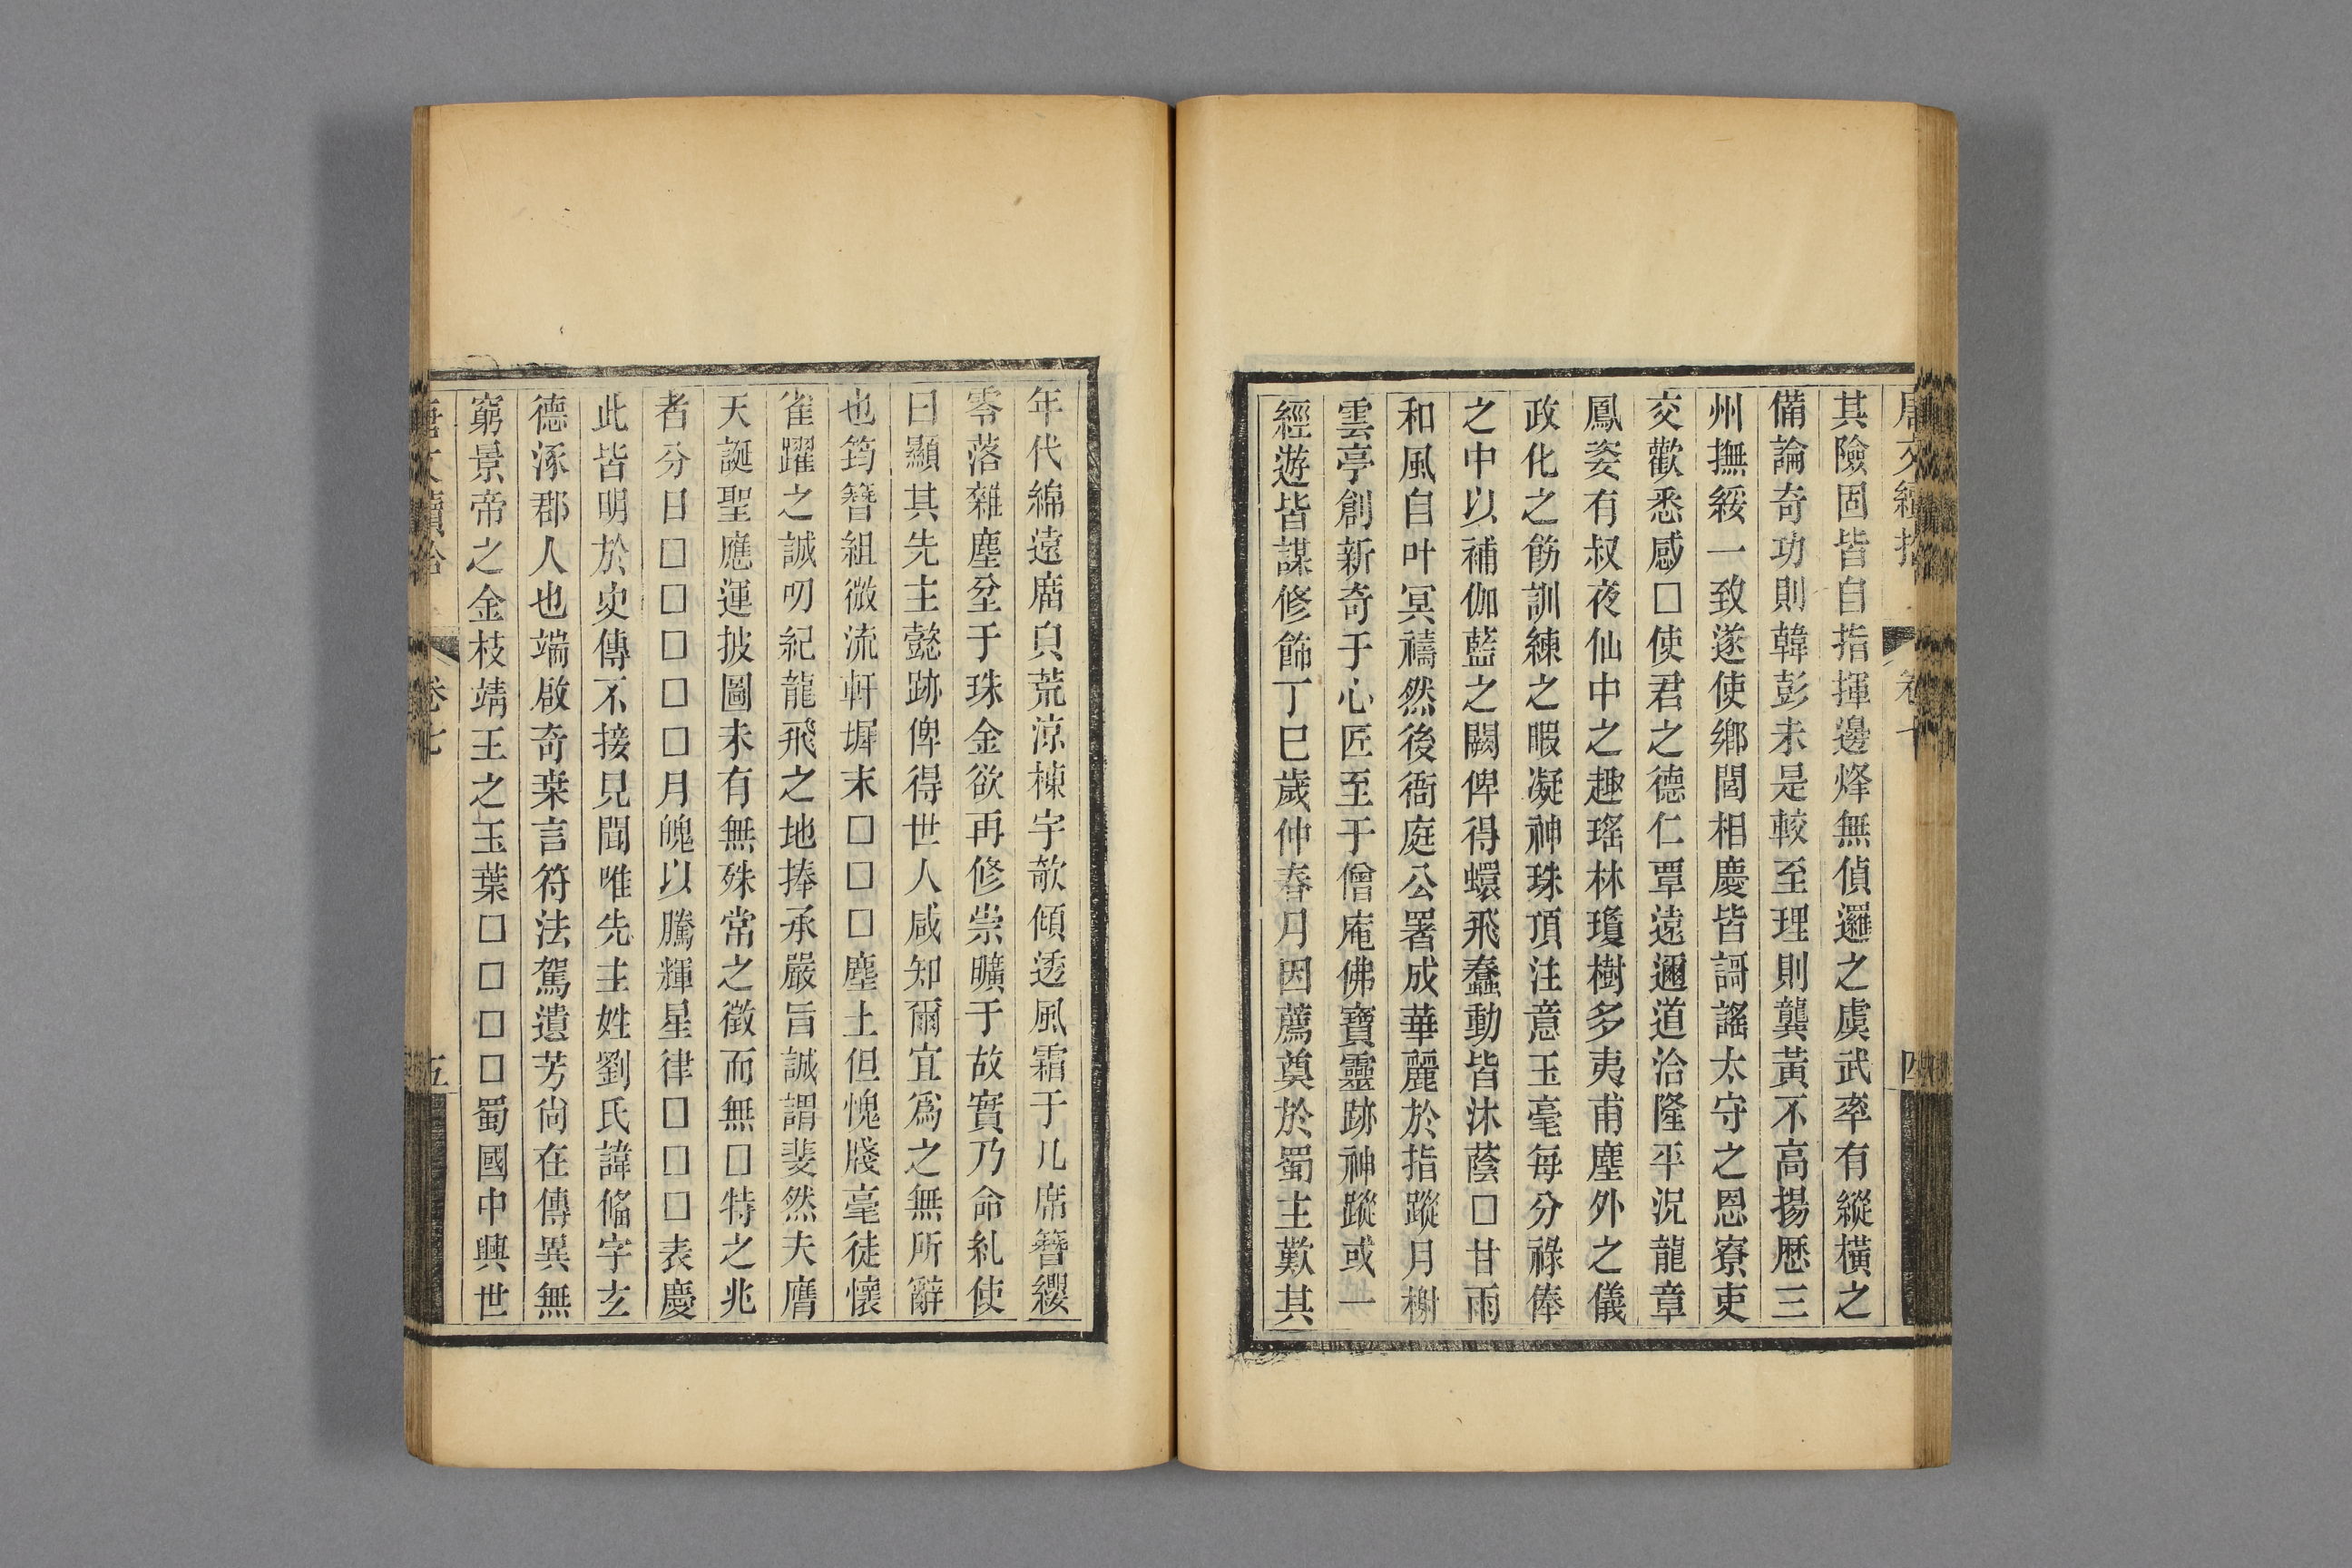 唐文續拾 卷七 四
其險固皆自指揮邊烽無偵邏之虞武牽有縱橫之
備論奇功則韓彭未是較至理則龔黃不高揚歷三
州撫綏一致遂使鄉閭相慶皆謌謠太守之恩寮吏
交歡悉感□使君之德仁覃遠邇道洽隆平況龍章
鳳姿有叔夜仙中之趣瑤林瓊樹多夷甫塵外之儀
政化之餝訓練之暇凝神珠頂注意玉毫每分祿俸
之中以補伽藍之闕俾得蠉飛蠢動皆沐蔭□甘雨
和風自叶冥禱然後衙庭公署成華麗於指蹤月榭
雲亭創新奇于心匠至于僧庵佛寶靈跡神蹤或一
經遊皆謀修飾丁巳歲仲春月因薦奠於蜀主歎其
年代綿遠庿皃荒涼棟宇欹傾透風霜于几席簪纓
零落雜塵坌于珠金欲再修崇曠于故實乃命糺使
曰顯其先主懿跡俾得世人咸知爾宜爲之無所辭
也筠簪組微流軒墀末□□□塵土但愧牋毫徒懷
雀躍之誠叨紀龍飛之地捧承嚴旨誠謂斐然夫膺
天誕聖應運披圖未有無殊常之徵而無□特之兆
者分日□□□□□月魄以騰輝星律□□□表慶
此皆明於史傳不接見聞唯先主姓劉氏諱俻字玄
德涿郡人也端啟奇桒言符法駕遺芳尙在傳異無
窮景帝之金枝靖王之玉葉□□□□蜀國中興世
唐文續拾 卷七 五